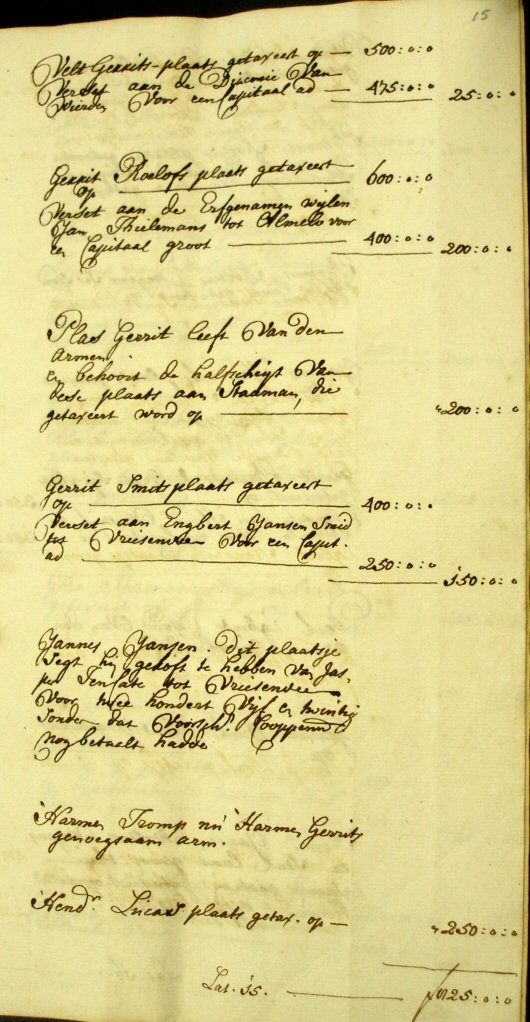 15
Velt Gerrits-plaats getaxeert op — 500:0:0
Verset aan de Diaconie Van
Wierden Voor een Capitaal ad — 475:0:0
25:0:0
Gerrit Roelofs plaats getaxeert
op 600:0:0
Verset aan de Erfgenamen wijlen
Jan Thielemans tot Almelo voor
en Capitaal groot 400:0:0
200:0:0
Plaes Gerrit leeft Van den
armen
en behoort de halfscheijt Van
dese plaats aan Stadman, die
getaxeert word op 200:0:0
Gerrit Smits plaats getaxeert
op 400:0:0
Verset aan Engbert Jansen Smid
tot Vriesenvee Voor een Capit.
ad 250:0:0
150:0:0
Jannes Jansen. Dit plaatsje
segt hij gekoft te hebben Van Jas-
per Tenkate tot Vriesenvee
Voor twee hondert Vijf en twintig
sonder dat Voorsch. Cooppenn.
nog betaelt hadde
Harmen Tromp nu Harmen Gerrits
genoegsaam arm.
Hendr. Lucas plaats getax. op — 250:0:0
Lat. 15. — 825:0:0